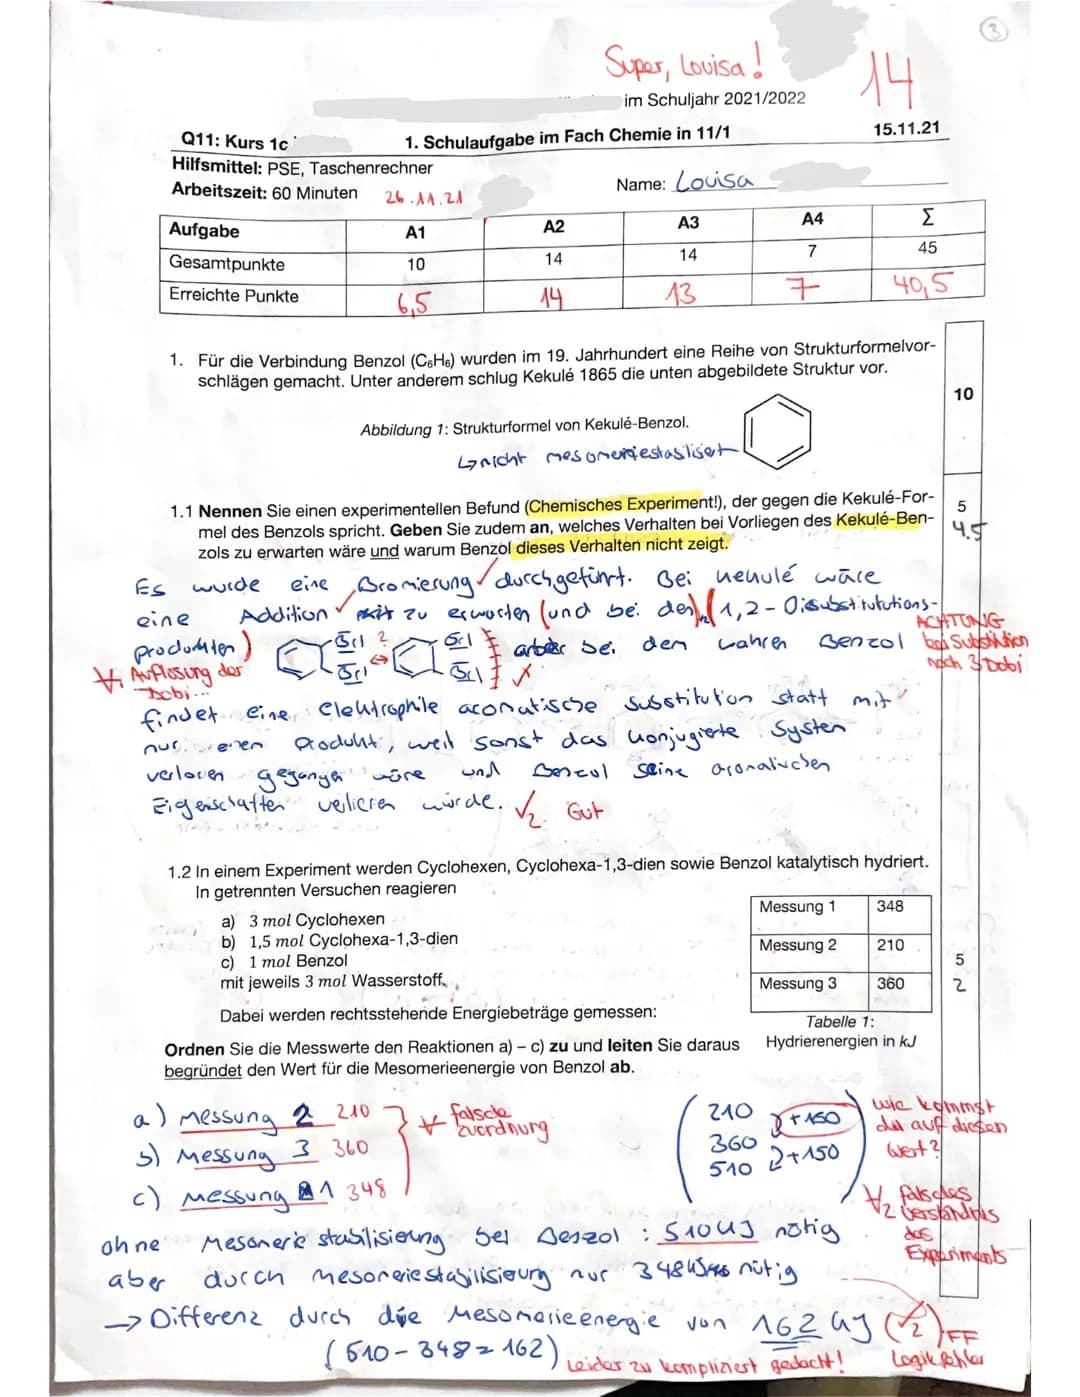 3
Super, Louisa!
14
im Schuljahr 2021/2022
Q11: Kurs 1c
1. Schulaufgabe im Fach Chemie in 11/1
15.11.21
Hilfsmittel: PSE, Taschenrechner
Arbeitszeit: 60 Minuten
26.11.21
Name: Louisa
Aufgabe A1 A2 A3 A4 Σ
Gesamtpunkte 10 14 14 7 45
Erreichte Punkte 6,5 14 13 7 40,5
1. Für die Verbindung Benzol (C₆H₆) wurden im 19. Jahrhundert eine Reihe von Strukturformelvor-
schlägen gemacht. Unter anderem schlug Kekulé 1865 die unten abgebildete Struktur vor.
10
Abbildung 1: Strukturformel von Kekulé-Benzol.
↳nicht mesomeriestabilisiert
1.1 Nennen Sie einen experimentellen Befund (Chemisches Experiment!), der gegen die Kekulé-For-
mel des Benzols spricht. Geben Sie zudem an, welches Verhalten bei Vorliegen des Kekulé-Ben-
zols zu erwarten wäre und warum Benzol dieses Verhalten nicht zeigt.
5
4.5
Es wurde eine Bromierung durchgeführt. Bei Kekulé wäre
eine Addition zu erwarten (und bei den 1,2-Disubstitutions-
produkten) aber bei dem wahren Benzol
ACHTUNG
bei Substitution
noch 3 Dobi
Auflösung der
Dobi...
findet eine elektrophile aromatische Substitution statt mit
nur einem Produkt, weil sonst das konjugierte System
verloren gegangen wäre und Benzol seine aromatischen
Eigenschaften verlieren würde. Gut
1.2 In einem Experiment werden Cyclohexen, Cyclohexa-1,3-dien sowie Benzol katalytisch hydriert.
In getrennten Versuchen reagieren
a) 3 mol Cyclohexen
b) 1,5 mol Cyclohexa-1,3-dien
c) 1 mol Benzol
mit jeweils 3 mol Wasserstoff.
Messung 1 348
Messung 2 210
Messung 3 360
5
2
Dabei werden rechtsstehende Energiebeträge gemessen:
Tabelle 1:
Hydrierenergien in kJ
Ordnen Sie die Messwerte den Reaktionen a) – c) zu und leiten Sie daraus
begründet den Wert für die Mesomerieenergie von Benzol ab.
a) Messung 2 210
b) Messung 3 360
c) Messung 1 348
falsche
Zuordnung
210 +150
360 +150
510
wie kommst
du auf diesen
Wert?
falsches
Verständnis
des
Experiments
ohne Mesomeriestabilisierung bei Benzol: 510 kJ nötig
aber durch Mesomeriestabilisierung nur 348 nötig
→ Differenz durch die Mesomerieenergie von 162 kJ
(510-348=162)
Leider zu kompliziert gedacht!
FF
Logikfehler